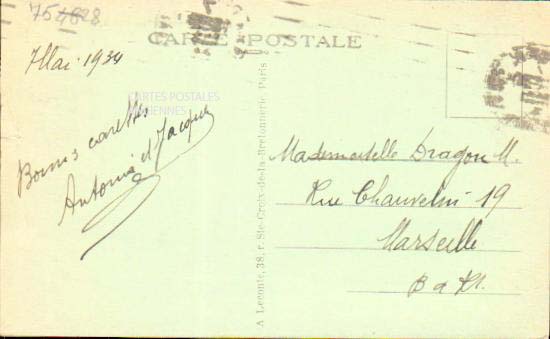 754828
CARTE POSTALE
Mai 1934
CARTES POSTALES
ANCIENNES
Bonnes
Antonia et Jacques
A Leconte, 38, r. Ste-Croix-de-la-Bretonnerie Paris
Mademoiselle Dragon M.
Rue Chauvelin 19
Marseille
B d R.